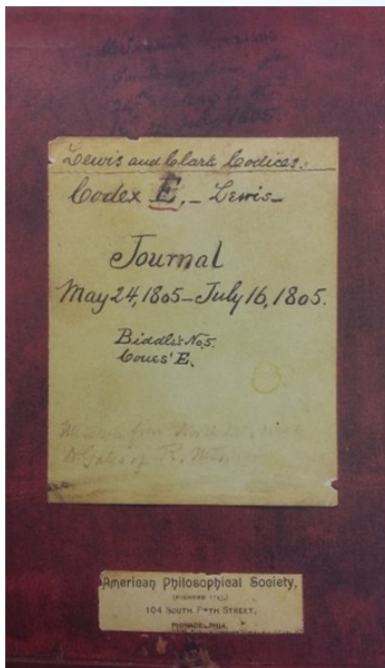 1805.
Lewis and Clark Codices.
Codex E, - Lewis -
Journal
May 24, 1805 - July 16, 1805.
Biddle's No. 5.
Coues' E.
from
Gates of R. Mts
American Philosophical Society,
104 SOUTH FIFTH STREET,
PHILADELPHIA.